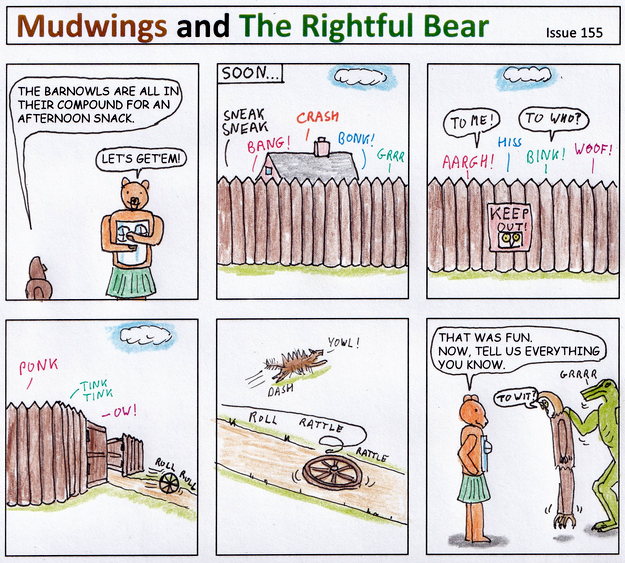 Mudwings and The Rightful Bear
Issue 155
THE BARNOWLS ARE ALL IN
THEIR COMPOUND FOR AN
AFTERNOON SNACK.
LET'S GET'EM!
SOON...
SNEAK
SNEAK
BANG!
CRASH
BONK!
GRRR
TO ME!
TO WHO?
AARGH!
HISS
BINK!
WOOF!
KEEP
OUT!
PONK
TINK
TINK
OW!
ROLL
ROLL
YOWL!
DASH
ROLL
RATTLE
RATTLE
THAT WAS FUN.
NOW, TELL US EVERYTHING
YOU KNOW.
TO WIT?
GRRRR